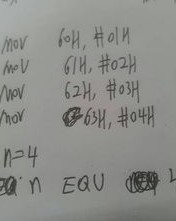 mov 60H, #01H
mov 61H, #02H
mov 62H, #03H
mov 63H, #04H
n=4
n EQU